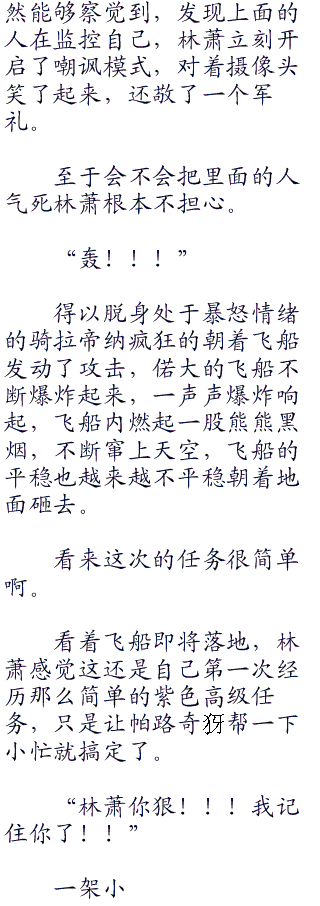 然能够察觉到，发现上面的
人在监控自己，林萧立刻开
启了嘲讽模式，对着摄像头
笑了起来，还敬了一个军
礼。
至于会不会把里面的人
气死林萧根本不担心。
“轰！！！”
得以脱身处于暴怒情绪
的骑拉帝纳疯狂的朝着飞船
发动了攻击，偌大的飞船不
断爆炸起来，一声声爆炸响
起，飞船内燃起一股熊熊黑
烟，不断窜上天空，飞船的
平稳也越来越不平稳朝着地
面砸去。
看来这次的任务很简单
啊。
看着飞船即将落地，林
萧感觉这还是自己第一次经
历那么简单的紫色高级任
务，只是让帕路奇犽帮一下
小忙就搞定了。
“林萧你狠！！！我记
住你了！！”
一架小